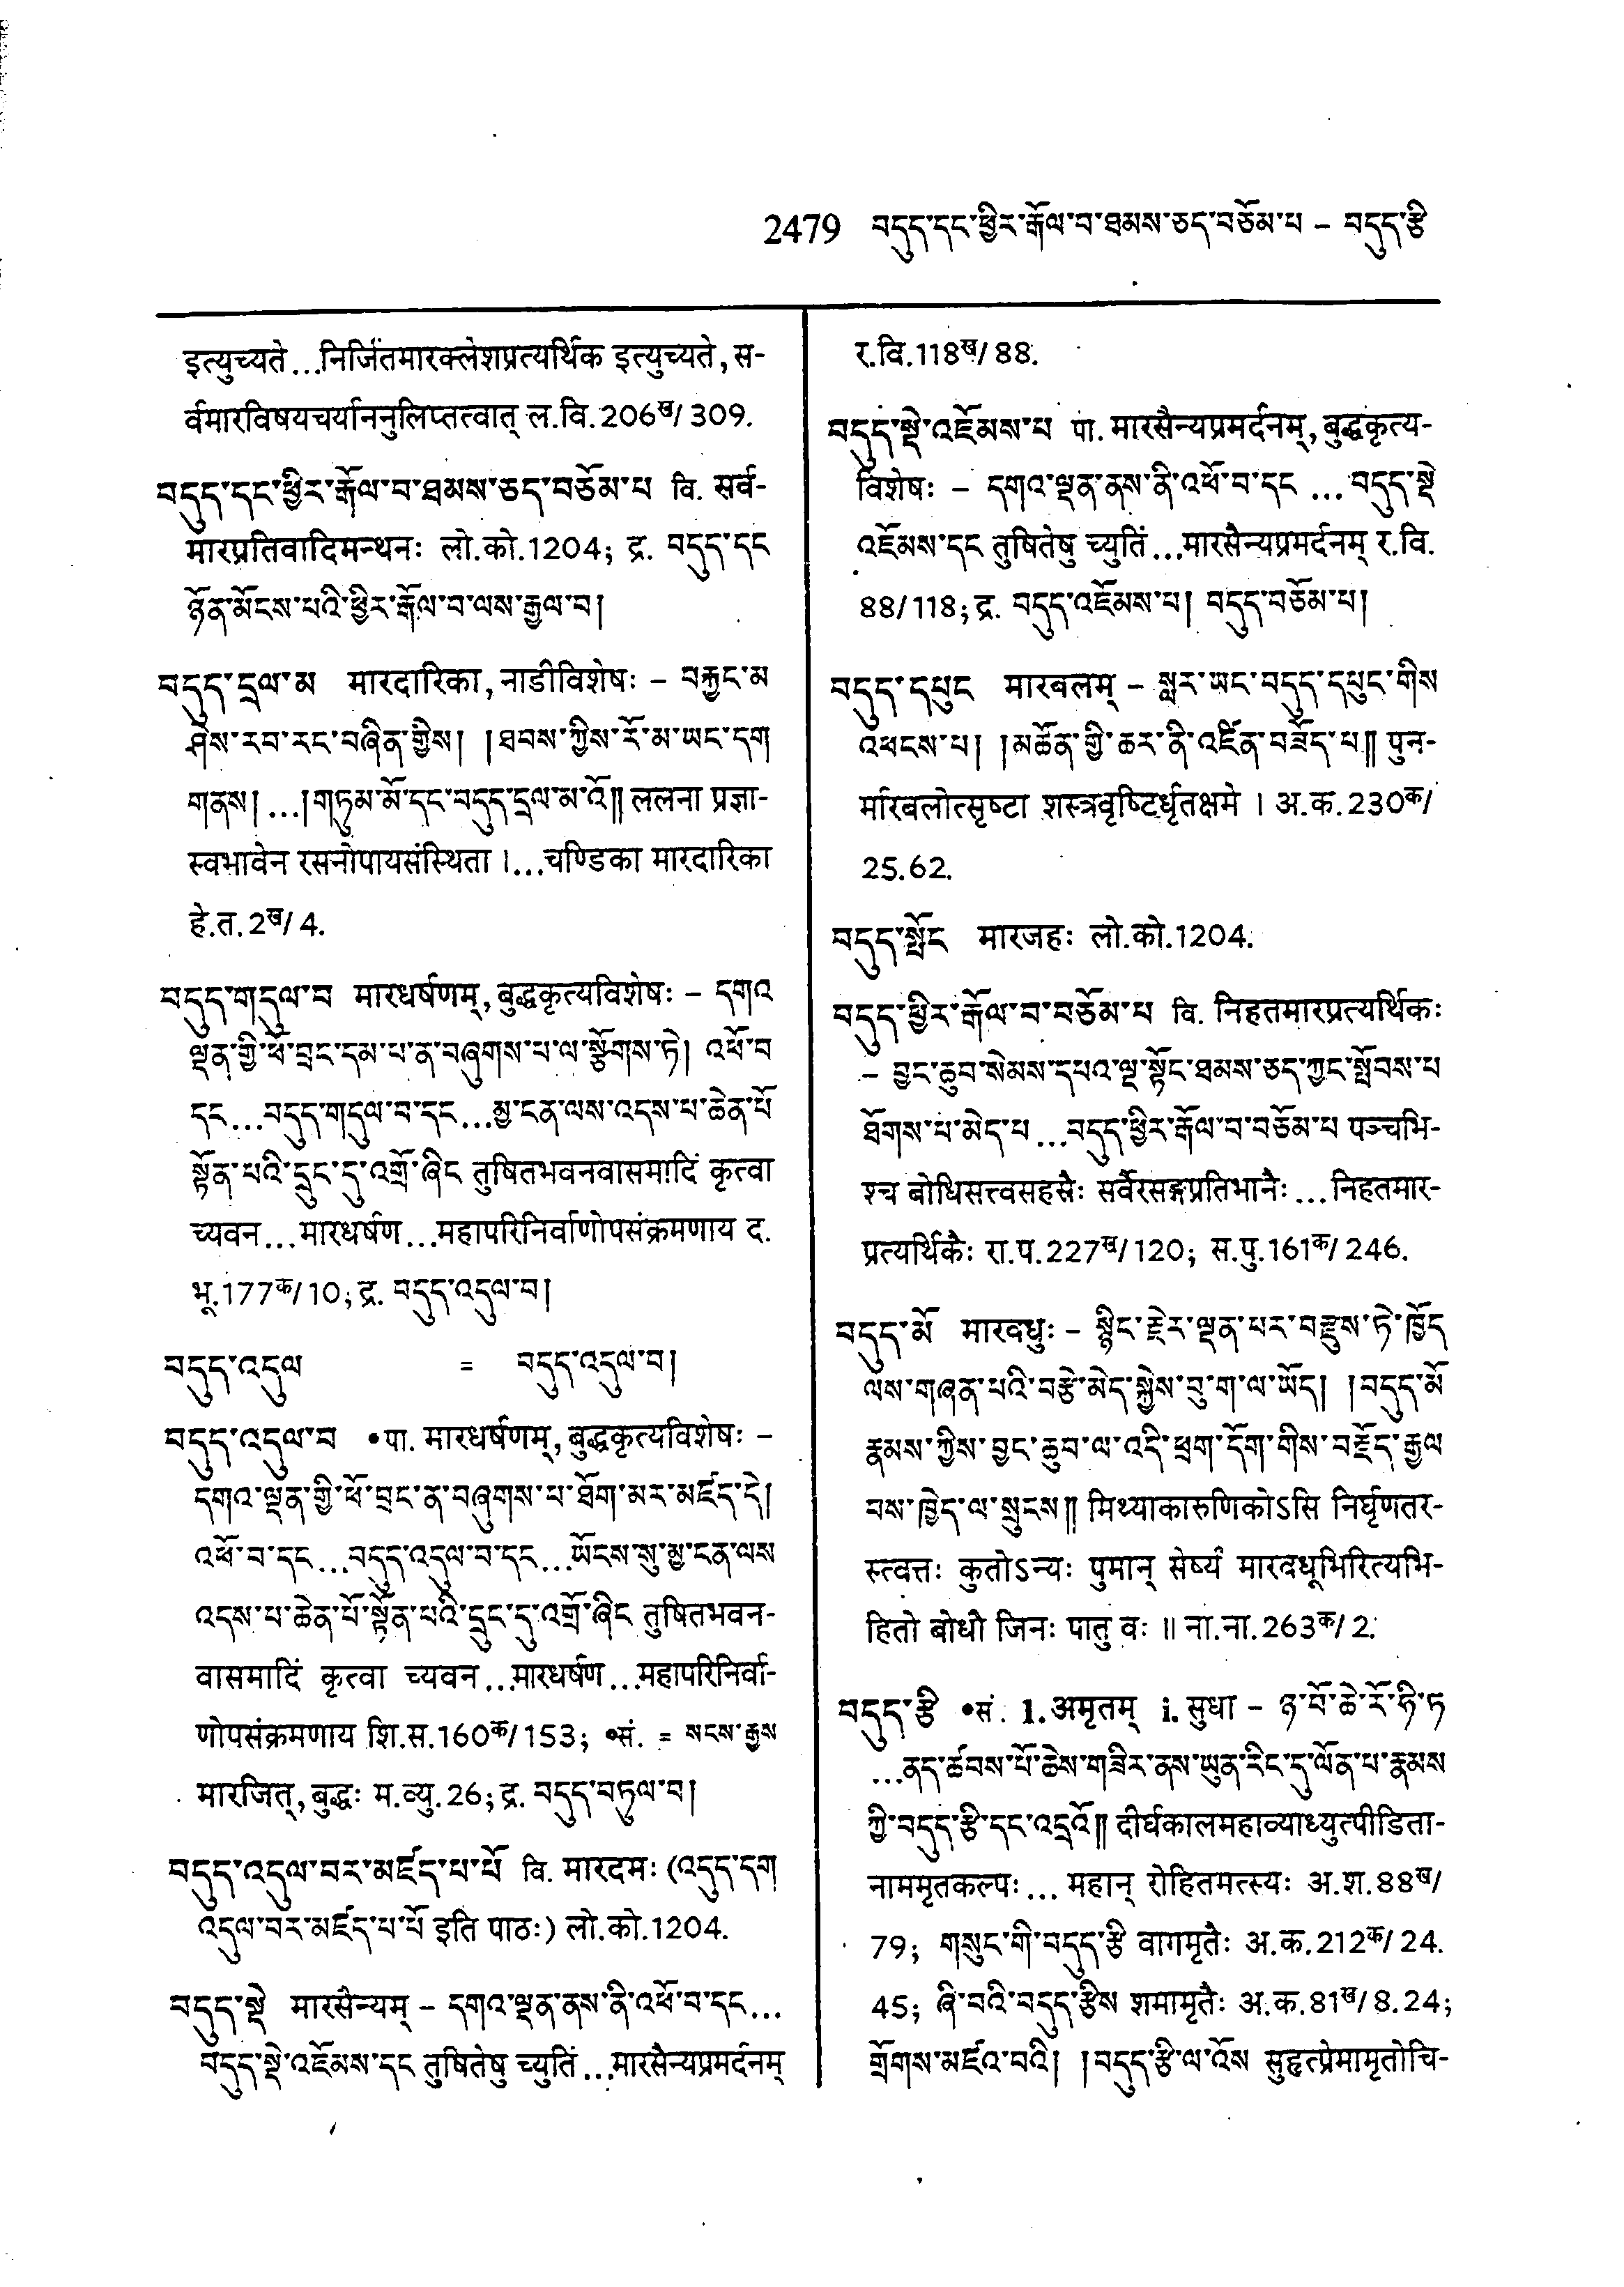 2479 བདུད་དང་ཕྱིར་རྒོལ་བ་ཐམས་ཅད་བཅོམ་པ – བདུད་རྩི
इत्युच्यते...निर्जितमारक्लेशप्रत्यर्थिक इत्युच्यते, स-
र्वमारविषयचर्याननुलिप्तत्वात् ल.वि.206ख/309.
བདུད་དང་ཕྱིར་རྒོལ་བ་ཐམས་ཅད་བཅོམ་པ वि. सर्व-
मारप्रतिवादिमन्थनः लो.को.1204; द्र. བདུད་དང
ཉོན་མོངས་པའི་ཕྱིར་རྒོལ་བ་ལས་རྒྱལ་བ།
བདུད་དྲལ་མ मारदारिका, नाडीविशेषः – བརྐྱང་མ
ཤེས་རབ་རང་བཞིན་གྱིས། །ཐབས་ཀྱིས་རོ་མ་ཡང་དག
གནས། ...།གཏུམ་མོ་དང་བདུད་དྲལ་མ་འོ༎ ललना प्रज्ञा-
स्वभावेन रसनोपायसंस्थिता ।...चण्डिका मारदारिका
हे.त.2ख/4.
བདུད་གདུལ་བ मारधर्षणम्, बुद्धकृत्यविशेषः – དགའ
ལྡན་གྱི་ཕོ་བྲང་དམ་པ་ན་བཞུགས་པ་ལ་སྩོགས་ཏེ། འཕོ་བ
དང...བདུད་གདུལ་བ་དང...མྱ་ངན་ལས་འདས་པ་ཆེན་པོ
སྟོན་པའི་དྲུང་དུ་འགྲོ་ཞིང तुषितभवनवासमादिं कृत्वा
च्यवन...मारधर्षण...महापरिनिर्वाणोपसंक्रमणाय द.
भू.177क/10; द्र. བདུད་འདུལ་བ།
བདུད་འདུལ = བདུད་འདུལ་བ།
བདུད་འདུལ་བ •पा. मारधर्षणम्, बुद्धकृत्यविशेषः –
དགའ་ལྡན་གྱི་ཕོ་བྲང་ན་བཞུགས་པ་ཐོག་མར་མཛད་དེ།
འཕོ་བ་དང...བདུད་འདུལ་བ་དང...ཡོངས་སུ་མྱ་ངན་ལས
འདས་པ་ཆེན་པོ་སྟོན་པའི་དྲུང་དུ་འགྲོ་ཞིང तुषितभवन-
वासमादिं कृत्वा च्यवन...मारधर्षण...महापरिनिर्वा-
णोपसंक्रमणाय शि.स.160क/153; •सं. = སངས་རྒྱས
मारजित्, बुद्धः म.व्यु.26; द्र. བདུད་བཏུལ་བ།
བདུད་འདུལ་བར་མཛད་པ་པོ वि. मारदमः (འདུད་དག
འདུལ་བར་མཛད་པ་པོ इति पाठः) लो.को.1204.
བདུད་སྡེ मारसैन्यम् – དགའ་ལྡན་ནས་ནི་འཕོ་བ་དང...
བདུད་སྡེ་འཇོམས་དང तुषितेषु च्युतिं...मारसैन्यप्रमर्दनम्
र.वि.118ख/88.
བདུད་སྡེ་འཇོམས་པ पा. मारसैन्यप्रमर्दनम्, बुद्धकृत्य-
विशेषः – དགའ་ལྡན་ནས་ནི་འཕོ་བ་དང ... བདུད་སྡེ
འཇོམས་དང तुषितेषु च्युतिं...मारसैन्यप्रमर्दनम् र.वि.
88/118; द्र. བདུད་འཇོམས་པ། བདུད་བཅོམ་པ།
བདུད་དཔུང मारबलम् – སླར་ཡང་བདུད་དཔུང་གིས
འཕངས་པ། །མཚོན་གྱི་ཆར་ནི་འཛིན་བཟོད་པ༎ पुन-
र्मारबलोत्सृष्टा शस्त्रवृष्टिर्धृतक्षमे । अ.क.230क/
25.62.
བདུད་སྤོང मारजहः लो.को.1204.
བདུད་ཕྱིར་རྒོལ་བ་བཅོམ་པ वि. निहतमारप्रत्यर्थिकः
– བྱང་ཆུབ་སེམས་དཔའ་ལྔ་སྟོང་ཐམས་ཅད་ཀྱང་སྤོབས་པ
ཐོགས་པ་མེད་པ...བདུད་ཕྱིར་རྒོལ་བ་བཅོམ་པ पञ्चभि-
श्च बोधिसत्त्वसहस्रैः सर्वैरसङ्गप्रतिभानैः...निहतमार-
प्रत्यर्थिकैः रा.प.227ख/120; स.पु.161क/246.
བདུད་མོ मारवधुः – སྙིང་རྗེར་ལྡན་པར་བརྫུས་ཏེ་ཁྱོད
ལས་གཞན་པའི་བརྩེ་མེད་སྐྱེས་བུ་ག་ལ་ཡོད། །བདུད་མོ
རྣམས་ཀྱིས་བྱང་ཆུབ་ལ་འདི་ཕྲག་དོག་གིས་བརྗོད་རྒྱལ
བས་ཁྱེད་ལ་སྲུངས༎ मिथ्याकारुणिकोऽसि निर्घृणतर-
स्त्वत्तः कुतोऽन्यः पुमान् सेर्ष्यं मारवधूभिरित्यभि-
हितो बोधौ जिनः पातु वः ॥ ना.ना.263क/2.
བདུད་རྩི •सं. 1. अमृतम् i. सुधा – ཉ་བོ་ཆེ་རོ་ཧི་ཏ
...ནད་ཚབས་པོ་ཆེས་གཟིར་ནས་ཡུན་རིང་དུ་ལོན་པ་རྣམས
ཀྱི་བདུད་རྩི་དང་འདྲའོ༎ दीर्घकालमहाव्याध्युत्पीडिता-
नाममृतकल्पः... महान् रोहितमत्स्यः अ.श.88ख/
79; གསུང་གི་བདུད་རྩི वागमृतैः अ.क.212क/24.
45; ཞི་བའི་བདུད་རྩིས शमामृतैः अ.क.81ख/8.24;
གྲོགས་མཛའ་བའི། །བདུད་རྩི་ལ་འོས सुहृत्प्रेमामृतोचि-